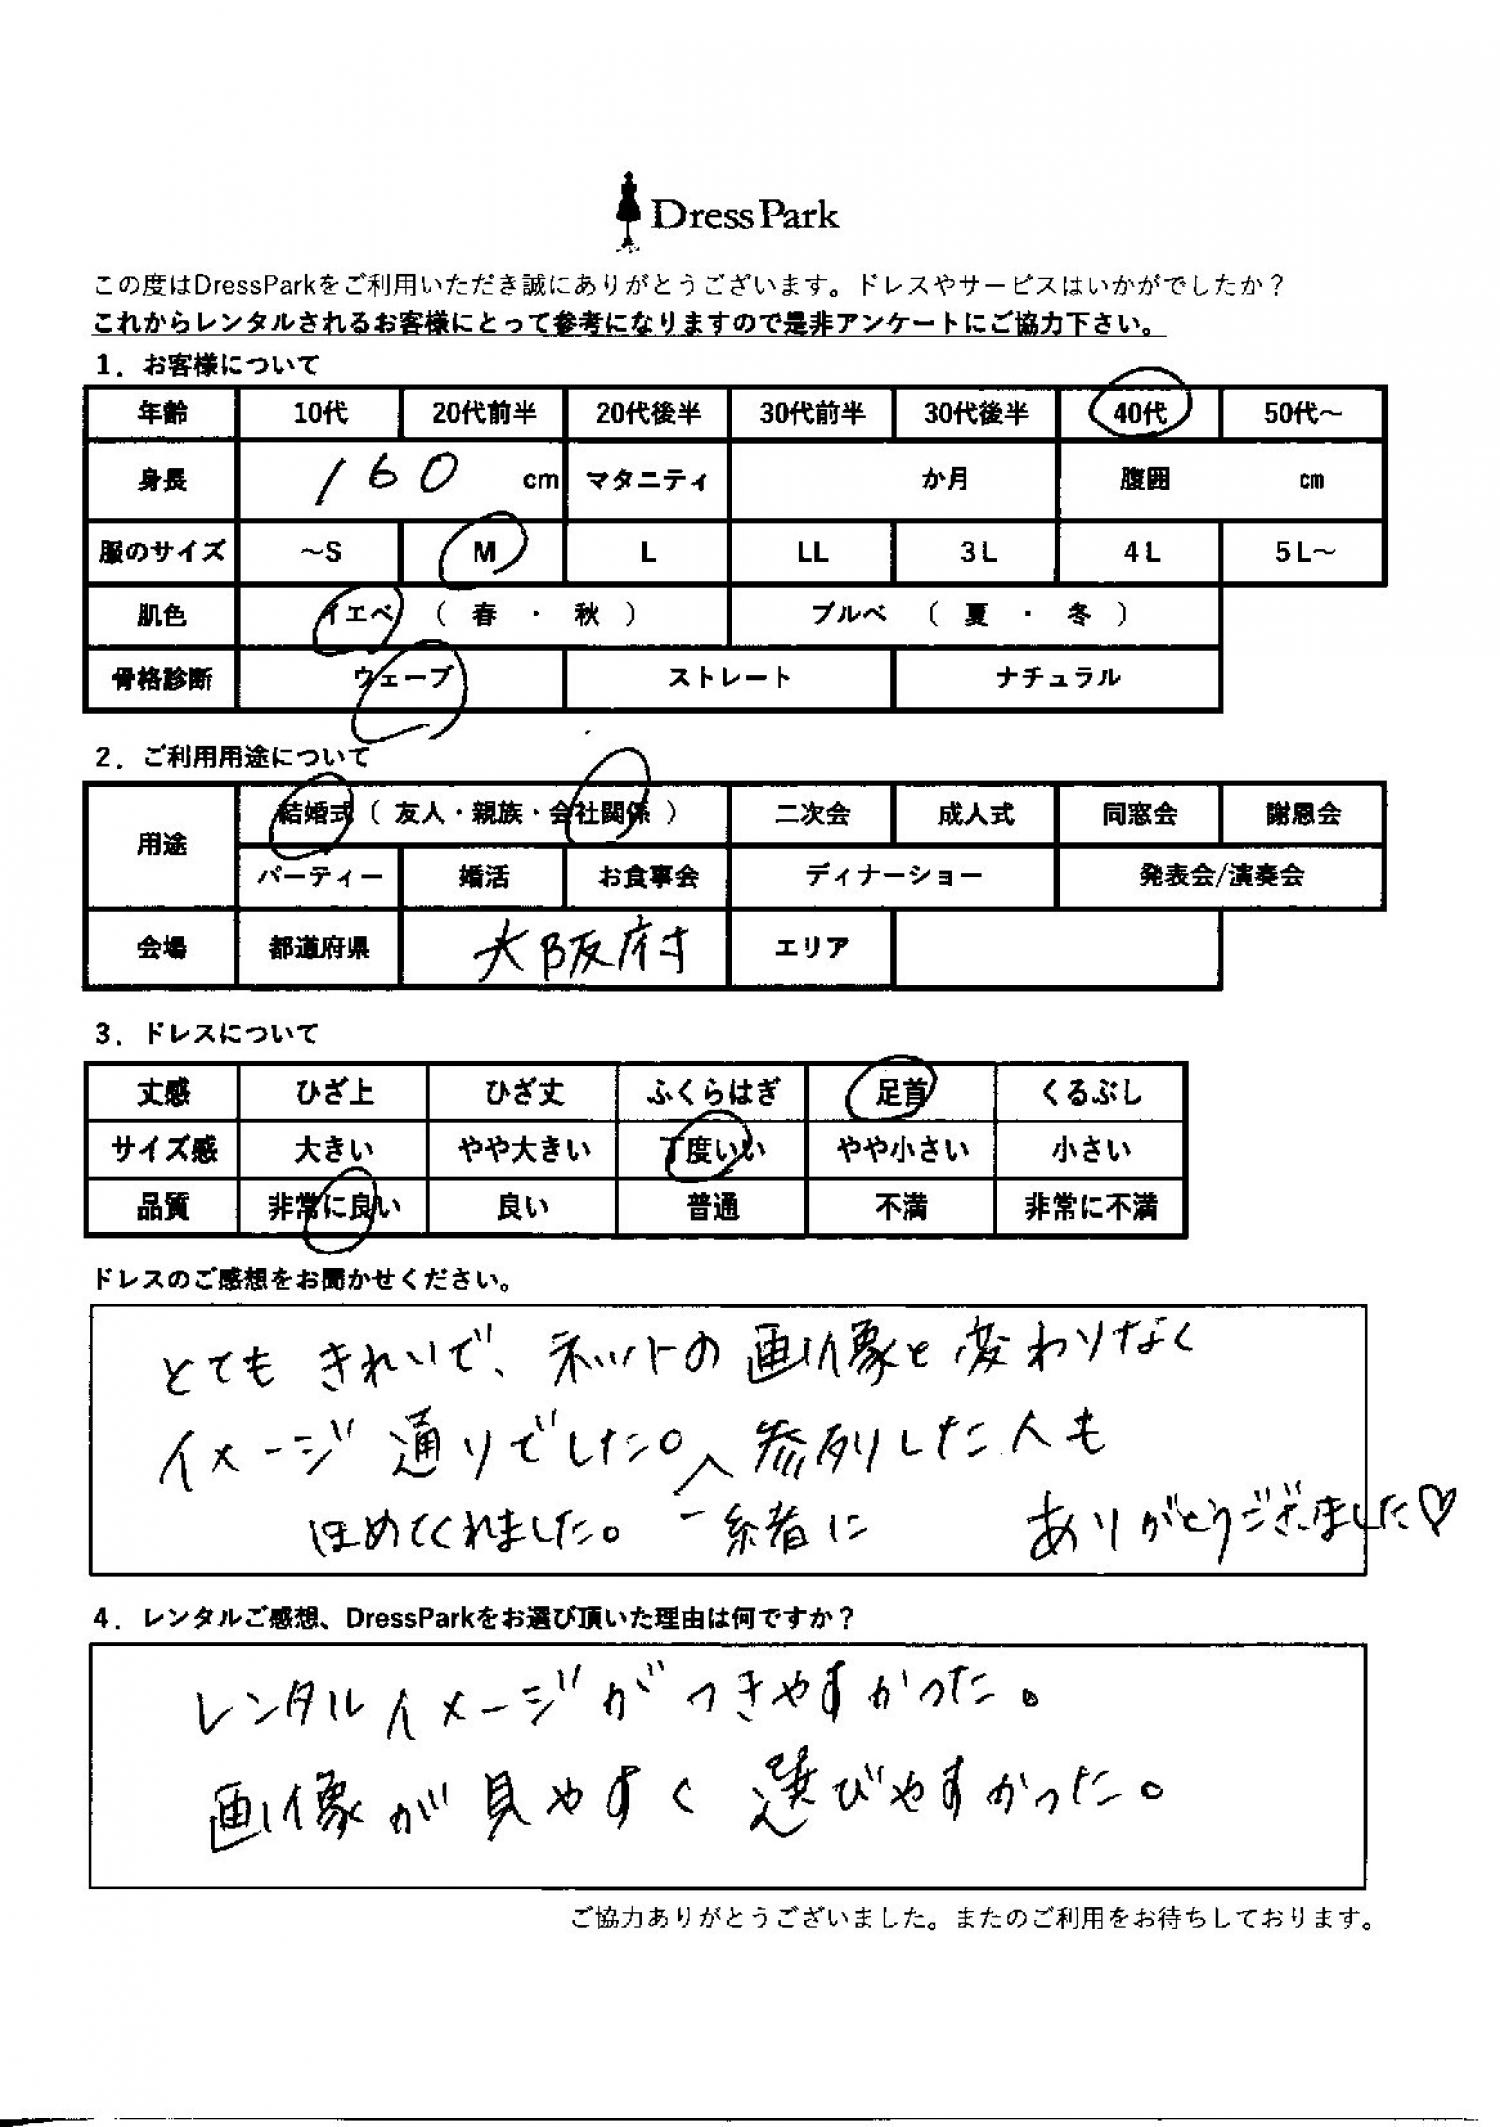 DressPark
この度はDressParkをご利用いただき誠にありがとうございます。ドレスやサービスはいかがでしたか？
これからレンタルされるお客様にとって参考になりますので是非アンケートにご協力下さい。
1．お客様について
年齢 10代 20代前半 20代後半 30代前半 30代後半 40代 50代～
身長 160 cm マタニティ か月 腹囲 cm
服のサイズ ～S M L LL 3L 4L 5L～
肌色 イエベ （ 春 ・ 秋 ） ブルベ （ 夏 ・ 冬 ）
骨格診断 ウェーブ ストレート ナチュラル
2．ご利用用途について
用途 結婚式（ 友人・親族・会社関係 ） 二次会 成人式 同窓会 謝恩会
パーティー 婚活 お食事会 ディナーショー 発表会/演奏会
会場 都道府県 大阪府 エリア
3．ドレスについて
丈感 ひざ上 ひざ丈 ふくらはぎ 足首 くるぶし
サイズ感 大きい やや大きい 丁度いい やや小さい 小さい
品質 非常に良い 良い 普通 不満 非常に不満
ドレスのご感想をお聞かせください。
とても きれいで、ネットの画像と変わりなく
イメージ通りでした。参列した人も
ほめてくれました。 一緒に ありがとうございました♡
4．レンタルご感想、DressParkをお選び頂いた理由は何ですか？
レンタルイメージがつきやすかった。
画像が見やすく 選びやすかった。
ご協力ありがとうございました。またのご利用をお待ちしております。